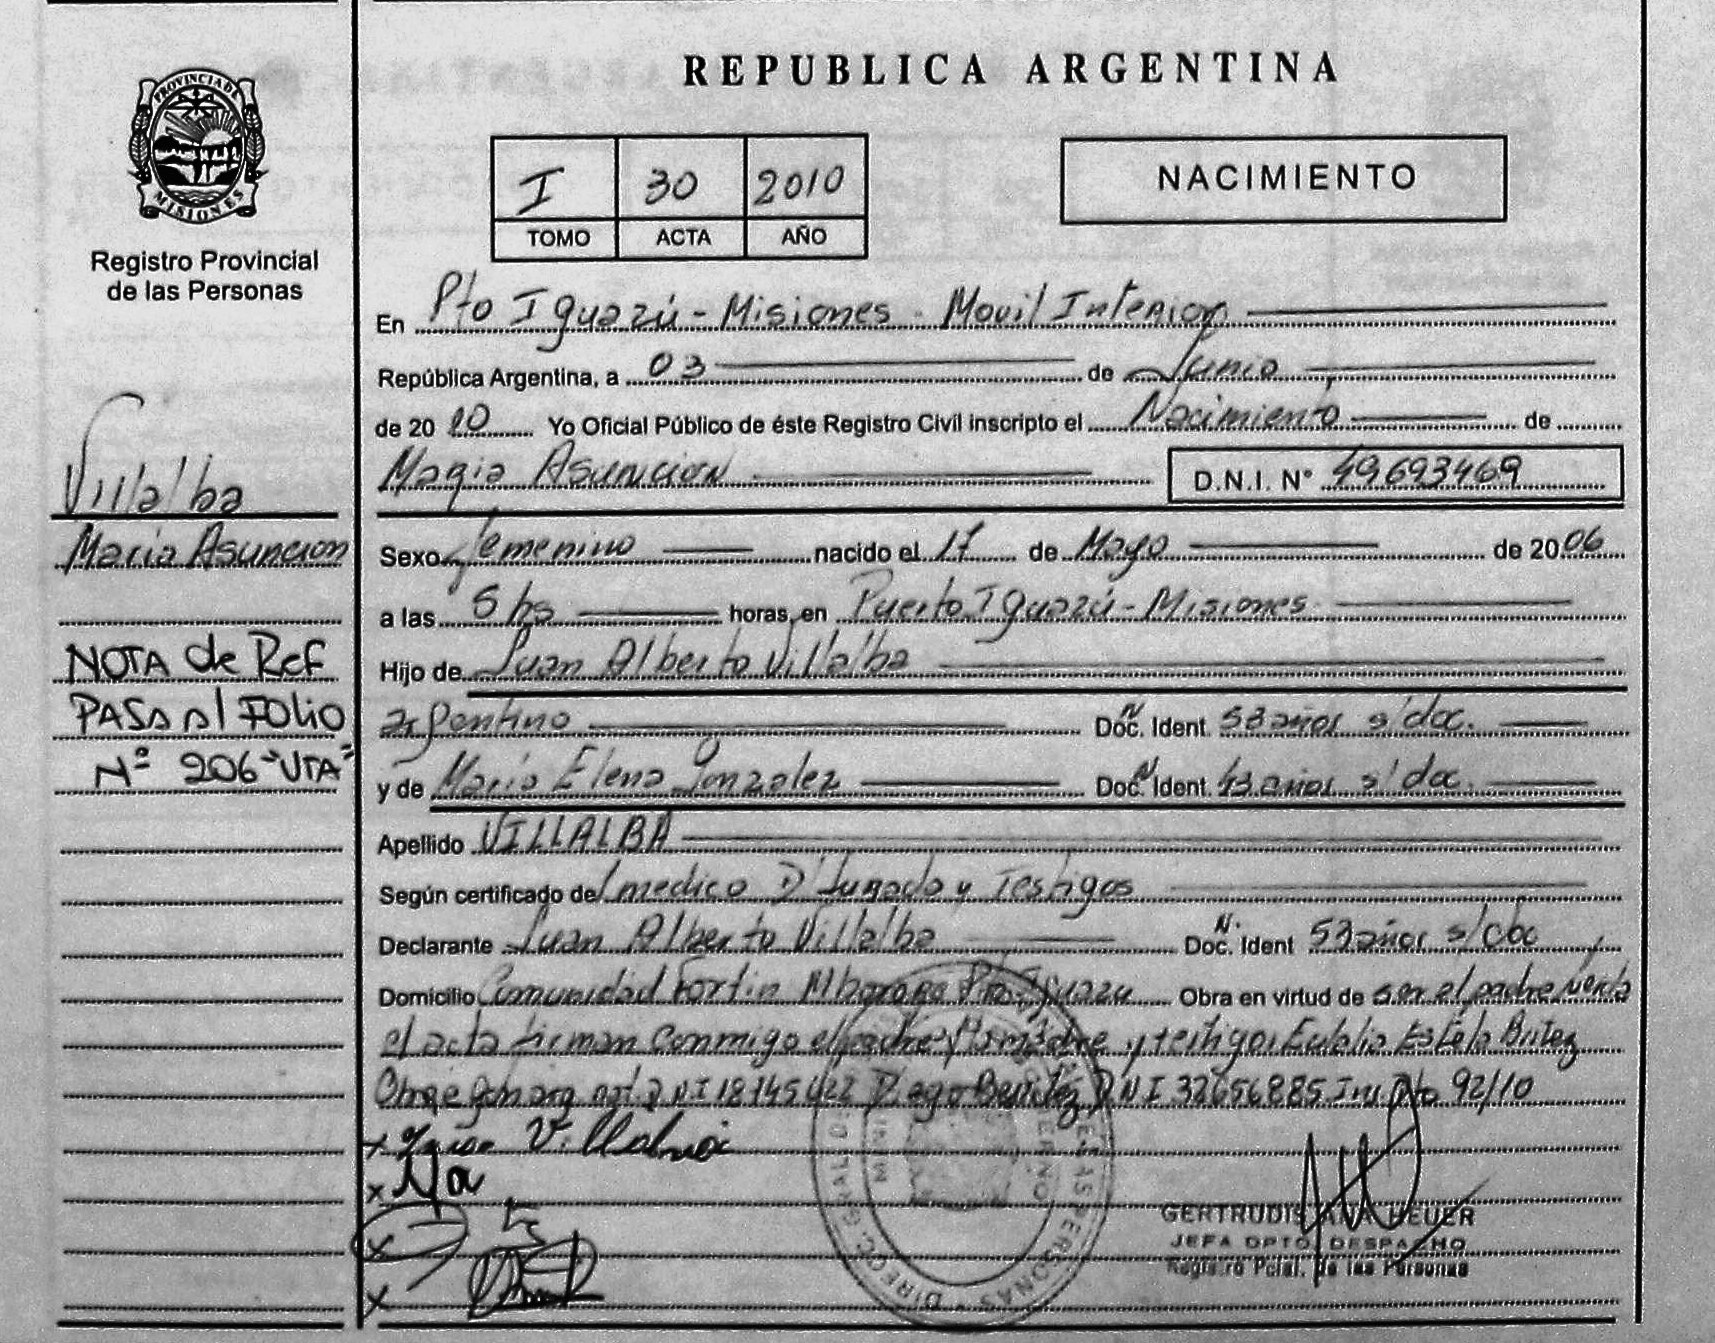 PROVINCIA DE
MISIONES
Registro Provincial
de las Personas
REPUBLICA ARGENTINA
I 30 2010
TOMO ACTA AÑO
NACIMIENTO
En Pto Iguazú - Misiones - Movil Interior
República Argentina, a 03 de Junio
de 20 10 Yo Oficial Público de éste Registro Civil inscripto el Nacimiento de
Maria Asuncion D.N.I. N° 49693469
Sexo femenino nacido el 17 de Mayo de 20 06
a las 5 hs horas, en Puerto Iguazú - Misiones
Hijo de Juan Alberto Villalba
argentino Doc. Ident. 53 años s/doc.
y de Maria Elena Gonzalez Doc. Ident. 43 años s/doc.
Apellido VILLALBA
Según certificado del medico D'Jurada y Testigos
Declarante Juan Alberto Villalba Doc. Ident 53 años s/doc
Domicilio Comunidad Fortin Mbororé Pto Iguazu Obra en virtud de ser el padre
el acta firman conmigo el padre y la madre y testigos Estela Britez
DNI 18145422 Diego Benitez DNI 32656885 92/10
x Villalba
x
x
x
GERTRUDIS ANA HEUER
JEFA DPTO. DESPACHO
Registro Pcial. de las Personas
Villalba
Maria Asuncion
NOTA de Ref
PASA al FOLIO
Nº 206 "VTA"